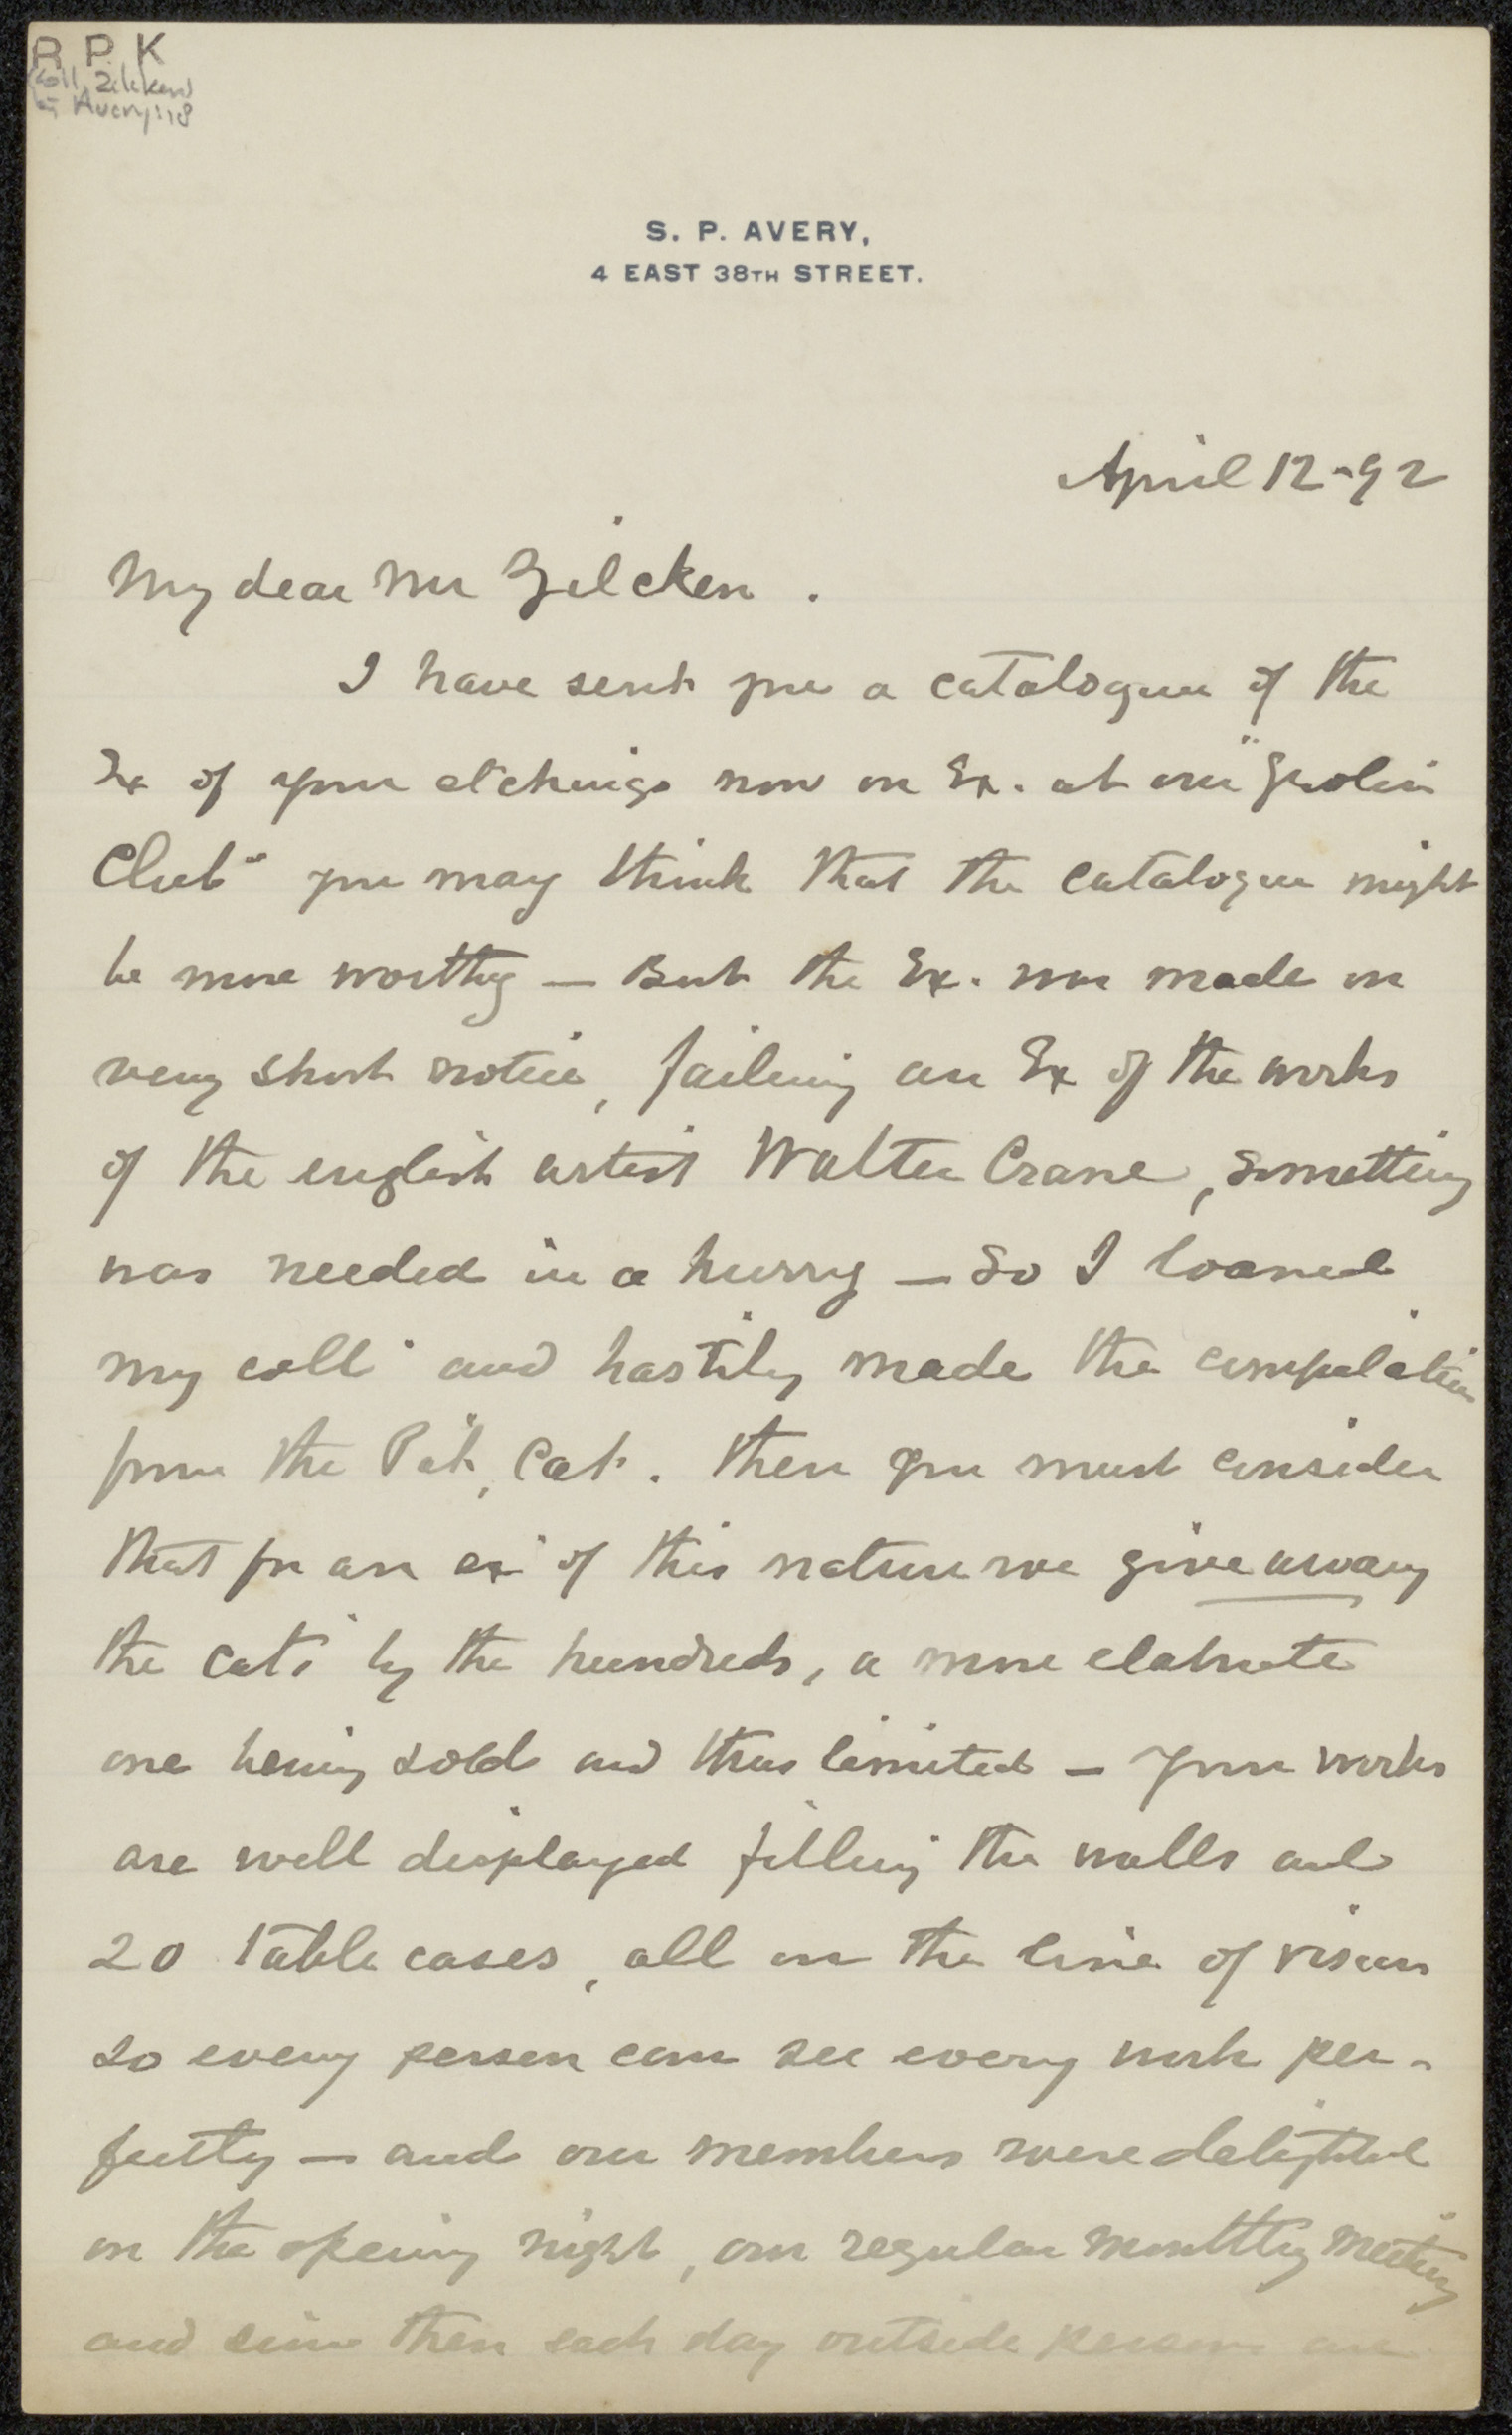 R P K
Coll. Zilcken
Avery: 18
S. P. AVERY,
4 EAST 38TH STREET.
April 12-92
My dear Mr Zilcken .
I have sent you a catalogue of the
Ex of your etchings now on Ex. at our "Grolier
Club" you may think that the catalogue might
be more worthy — But the Ex. was made on
very short notice, failing an Ex of the works
of the english artist Walter Crane, something
was needed in a hurry — So I loaned
my coll and hastily made the compilation
from the Cat. then you must consider
that for an ex of this nature we give away
the cats by the hundreds, a more elaborate
one being sold and thus limited — Your works
are well displayed filling the walls and
20 Table cases, all on the line of vision
so every person can see every work per-
fectly — and our members were delighted
on the opening night, our regular monthly meeting
and since then each day outside persons are